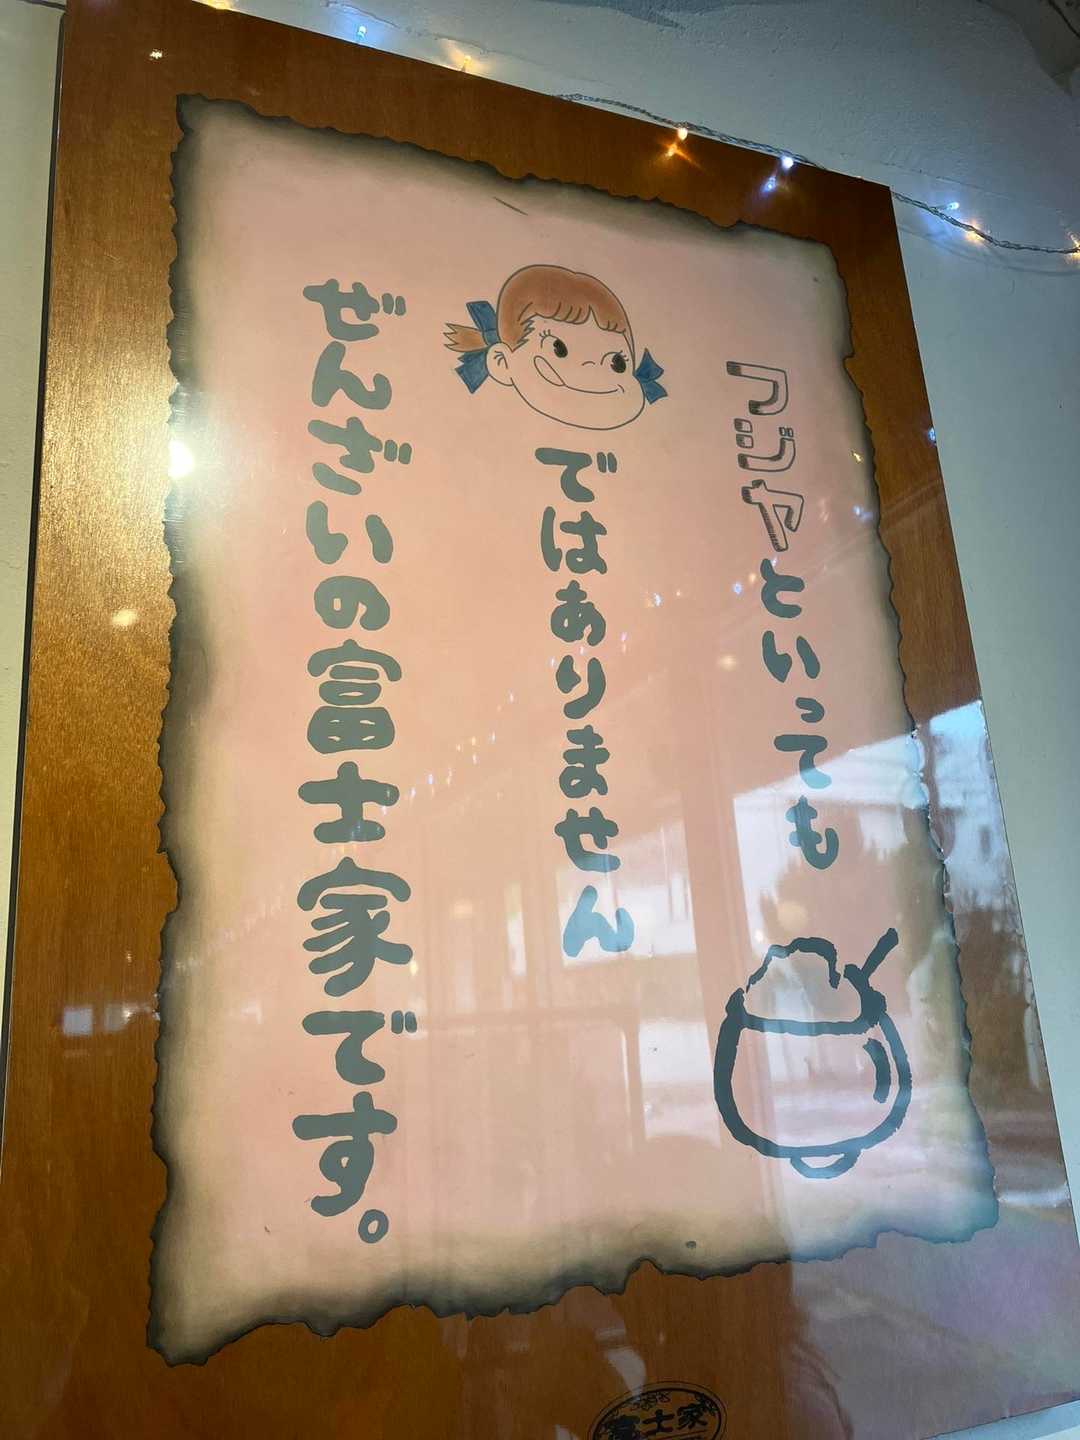 フジヤといっても
ではありません
ぜんざいの富士家です。
富士家